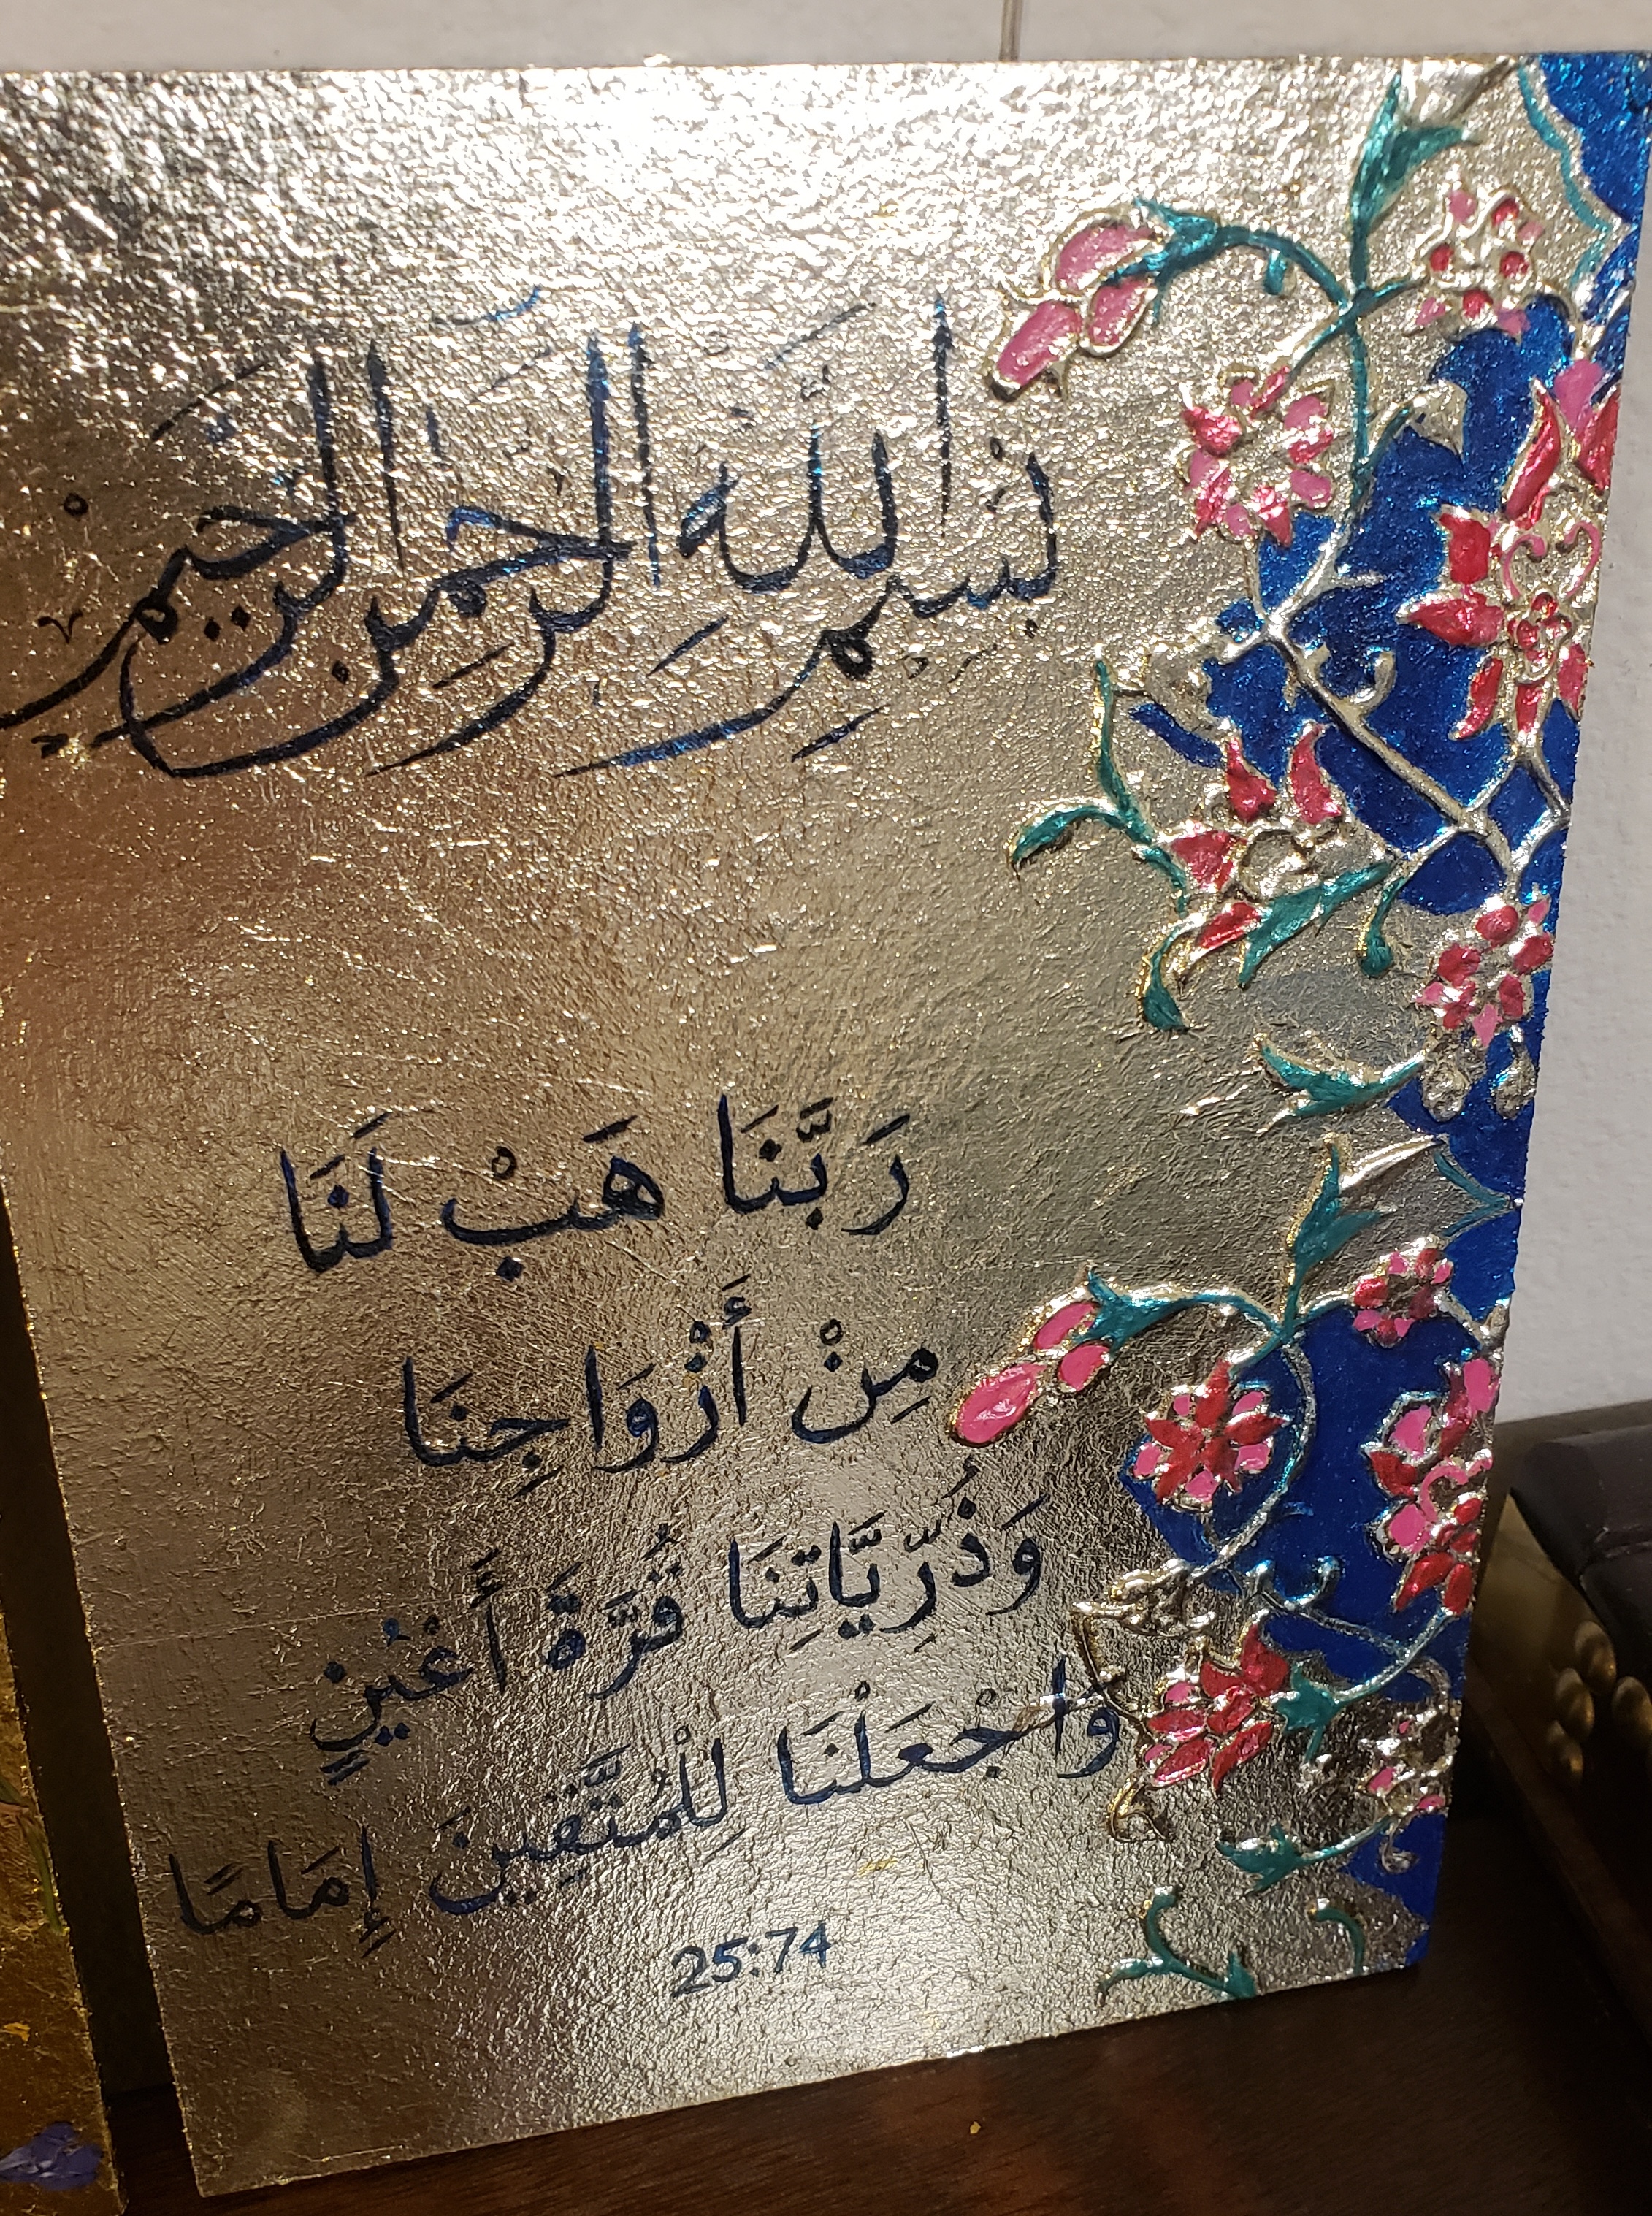 بِسْمِ اللَّهِ الرَّحْمَٰنِ الرَّحِيمِ
رَبَّنَا هَبْ لَنَا
مِنْ أَزْوَاجِنَا
وَذُرِّيَّاتِنَا قُرَّةَ أَعْيُنٍ
وَاجْعَلْنَا لِلْمُتَّقِينَ إِمَامًا
25:74